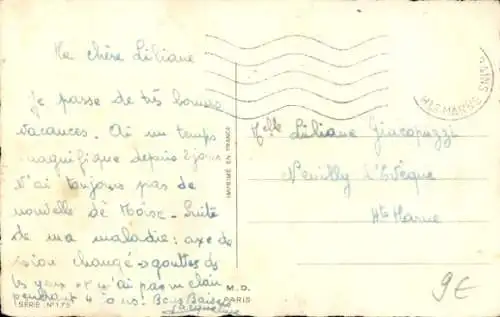 Ma chère Liliane
Je passe de très bonnes
vacances. Ai un temps
magnifique depuis 2 jours
N'ai toujours pas de
nouvelle de Moïse - Suite
de ma maladie : axe de
vision changé gouttes ds
les yeux et n'ai pas vu clair
pendant 4 jours. Bons Baisers
Jacqueline
SÉRIE N° 175
M. D.
PARIS
IMPRIMÉ EN FRANCE
BAINS
HTE MARNE
Melle Liliane Giacopuzzi
Neuilly l'Evêque
Hte Marne
9€